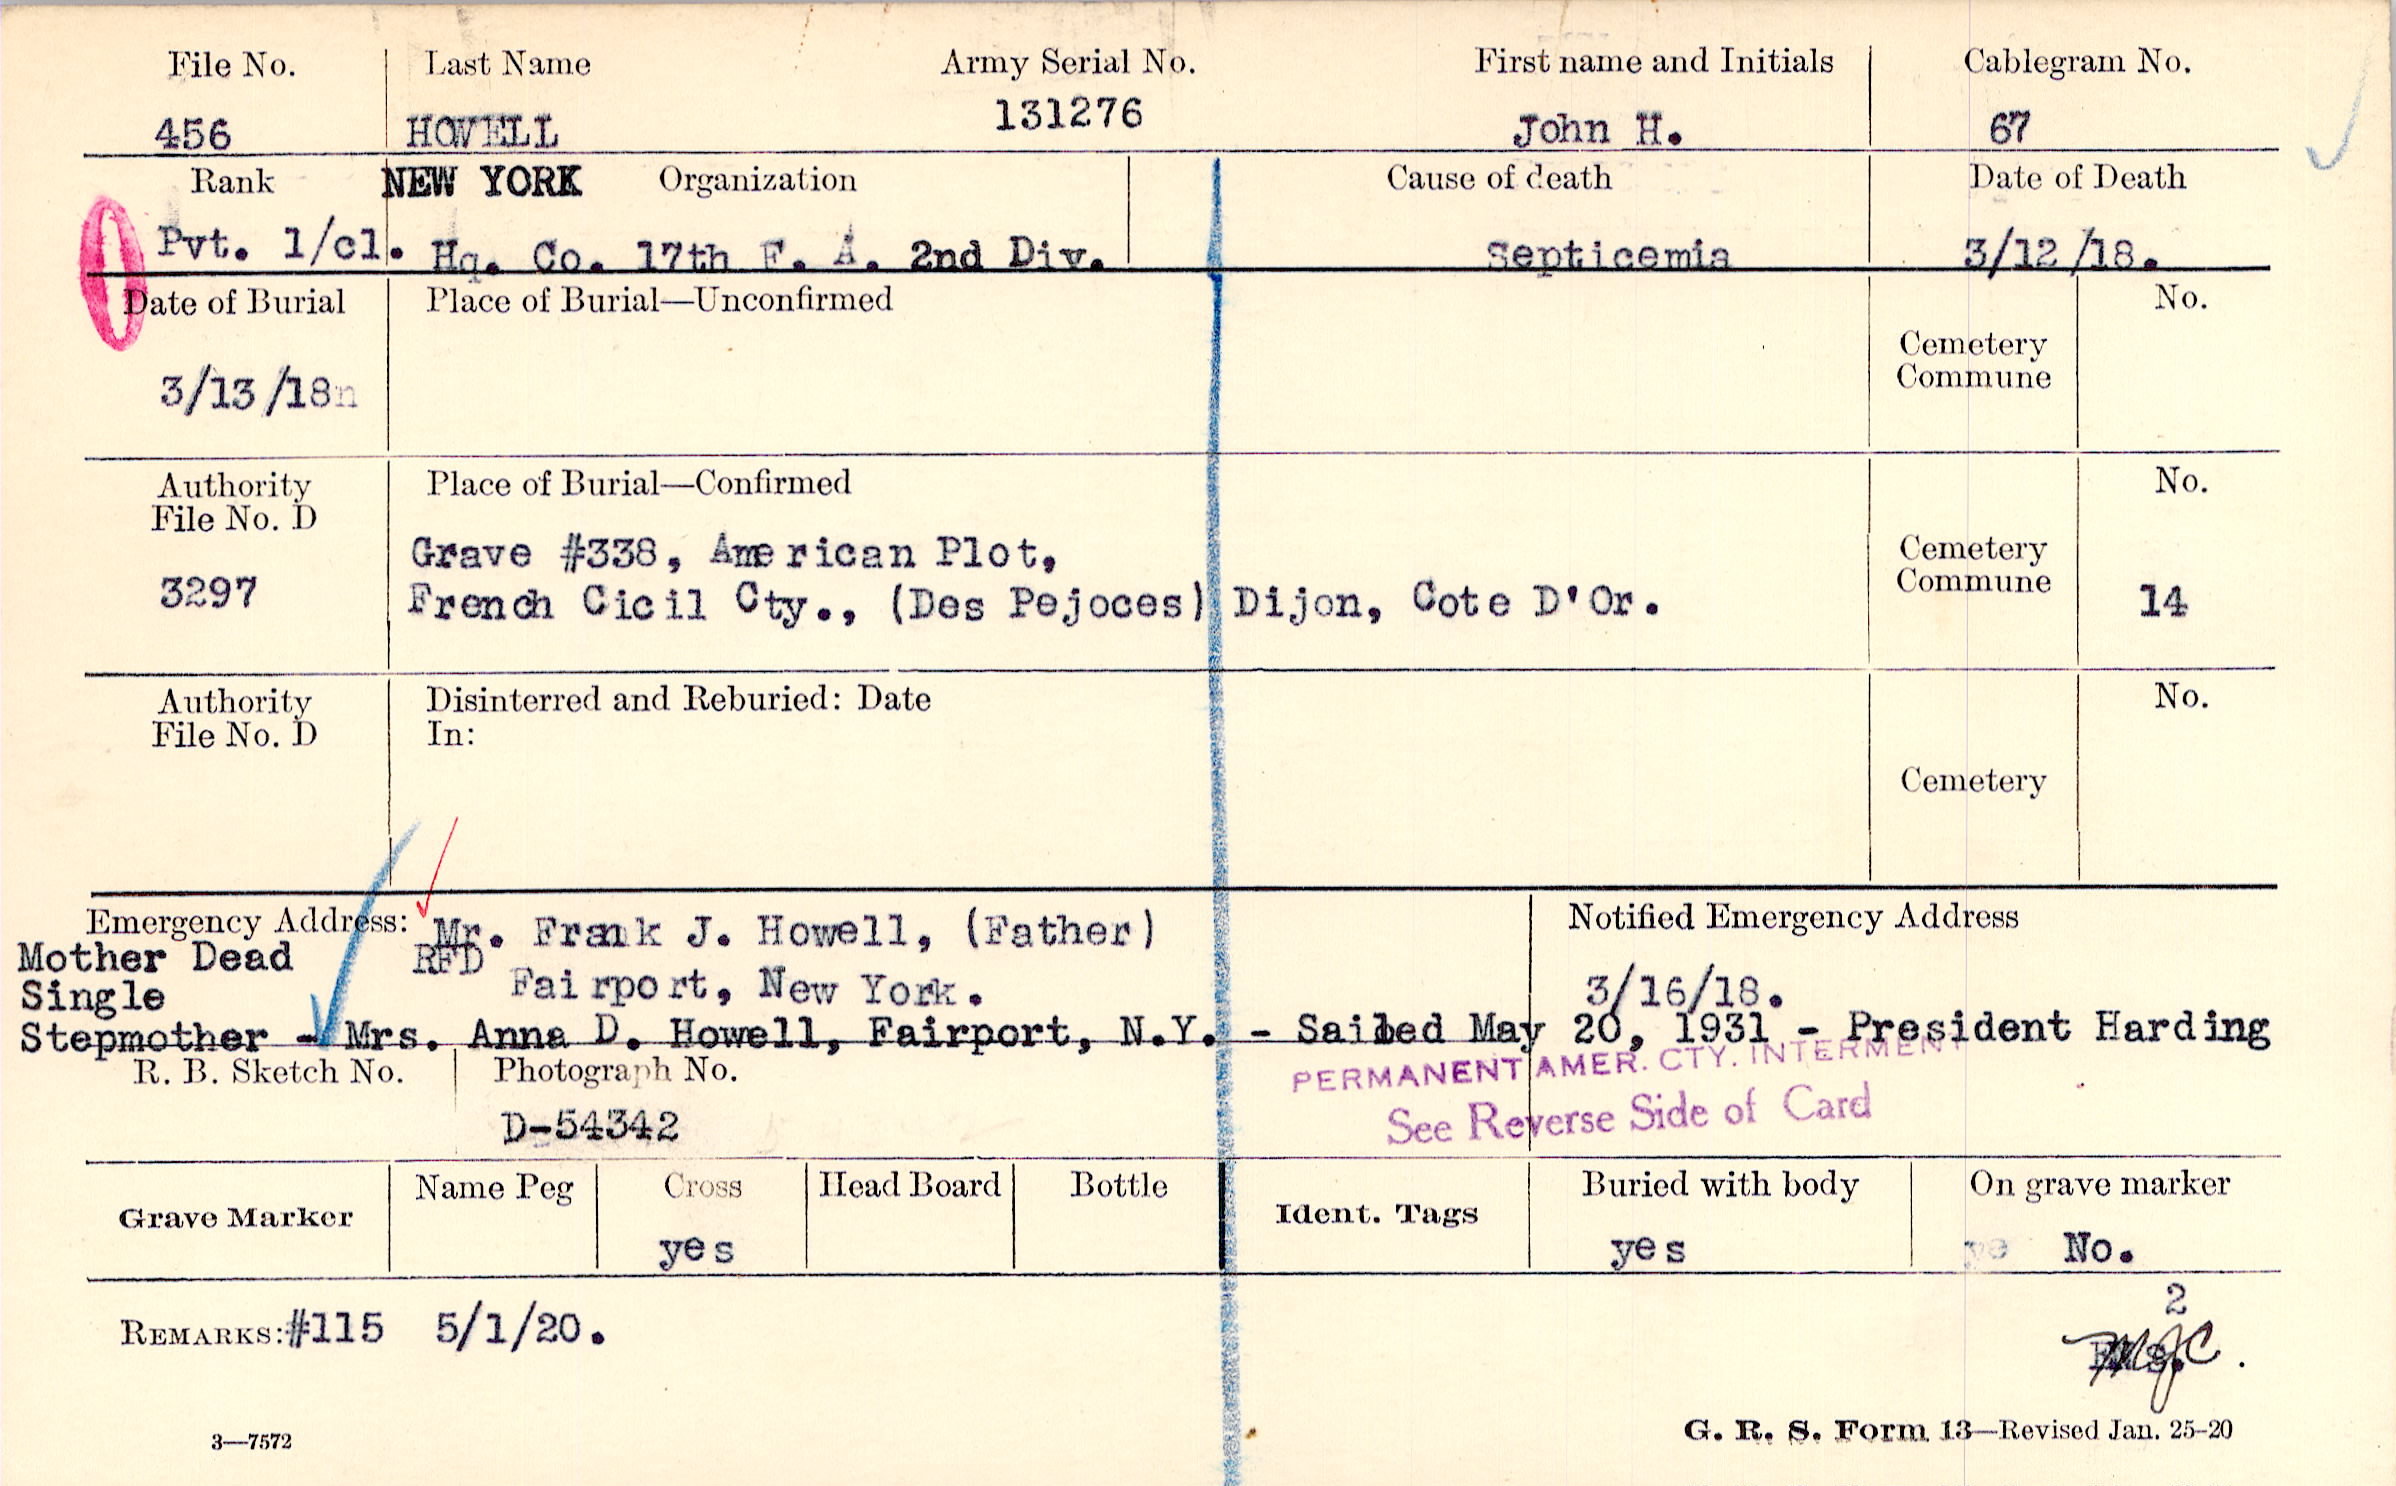 File No. Last Name Army Serial No. First name and Initials Cablegram No.
456 HOWELL 131276 John H. 67
Rank NEW YORK Organization Cause of death Date of Death
Pvt. 1/cl. Hq. Co. 17th F. A. 2nd Div. Septicemia 3/12/18.
Date of Burial Place of Burial—Unconfirmed No.
Cemetery
Commune
3/13/18
Authority Place of Burial—Confirmed No.
File No. D
Grave #338, American Plot, Cemetery
3297 French Cicil Cty., (Des Pejoces) Dijon, Cote D'Or. Commune 14
Authority Disinterred and Reburied: Date No.
File No. D In:
Cemetery
Emergency Address: Mr. Frank J. Howell, (Father) Notified Emergency Address
Mother Dead RFD
Single Fairport, New York. 3/16/18.
Stepmother - Mrs. Anna D. Howell, Fairport, N.Y. - Sailed May 20, 1931 - President Harding
R. B. Sketch No. Photograph No. PERMANENT AMER. CTY. INTERMENT
D-54342 See Reverse Side of Card
Grave Marker Name Peg Cross Head Board Bottle Ident. Tags Buried with body On grave marker
yes yes No.
2
REMARKS: #115 5/1/20. MJC
3—7572 G. R. S. Form 13—Revised Jan. 25-20